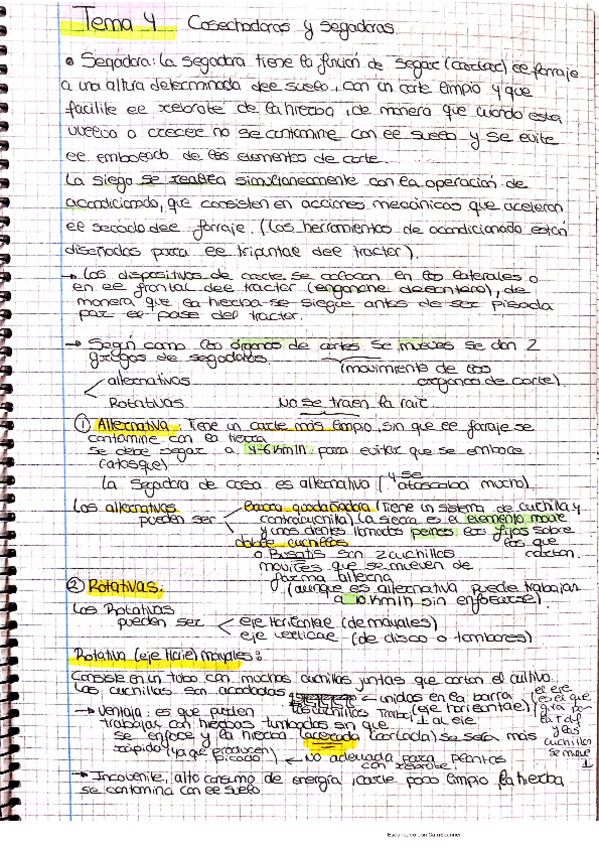 Tema 4 Cosechadoras y segadoras.
• Segadora: La segadora tiene la función de segar (cortar) el forraje
a una altura determinada del suelo, con un corte limpio y que
facilite el rebrote de la hierba, de manera que cuando esta
vuelva a crecer no se contamine con el suelo y se evite
el embozado de los elementos de corte.
La siega se realiza simultaneamente con la operación de
acondicionado, que consisten en acciones mecánicas que aceleran
el secado del forraje. (Las herramientas de acondicionado están
diseñadas para el tripuntal del tractor).
→ Los dispositivos de corte se colocan en los laterales o
en el frontal del tractor (enganche delantero), de
manera que la hierba se siegue antes de ser pisada
por el paso del tractor.
→ Según como los órganos de cortes se mueves se dan 2
grupos de segadoras. (movimiento de los
organos de corte).
alternativas
Rotativas No se traen la raiz.
① Alternativa: Tiene un corte más limpio, sin que el forraje se
contamine con la tierra
se debe segar a 4-6 km/h para evitar que se emboce
(atasque)
La segadora de casa es alternativa (y se atascaba mucho).
Las alternativas pueden ser
barra guadañadora (Tiene un sistema de cuchilla y
contracuchilla). La sierra es el elemento movil
y unos dientes llamados peines los fijos sobre
los que cortan.
doble cuchillas
o Busatis son 2 cuchillas
movices que se mueven de
forma alterna
(aunque es alternativa puede trabajar
a 10 km/h sin enfoscarse).
② Rotativas:
Las Rotativas
pueden ser eje Horizontal (de mayales)
eje vertical (de disco o tambores)
Rotativa (eje Horiz) mayales:
Consiste en un tubo con muchas cuchillas juntas que cortan el cultivo.
Las cuchillas son acodadas ← unidas en la barra
(eje horizontal)
Las cuchillas Traba. ⊥ al eje.
→ Ventaja: es que pueden
trabajar con hierbas tumbadas sin que
se enfoce y la hierba (cortada) se seca mas
rapido (ya que producen
picado) ← No adecuada para
con rebrote.
→ Incovenite, alto consumo de energía, corte poco limpio y la hierba
se contamina con el suelo.
Escaneado con CamScanner